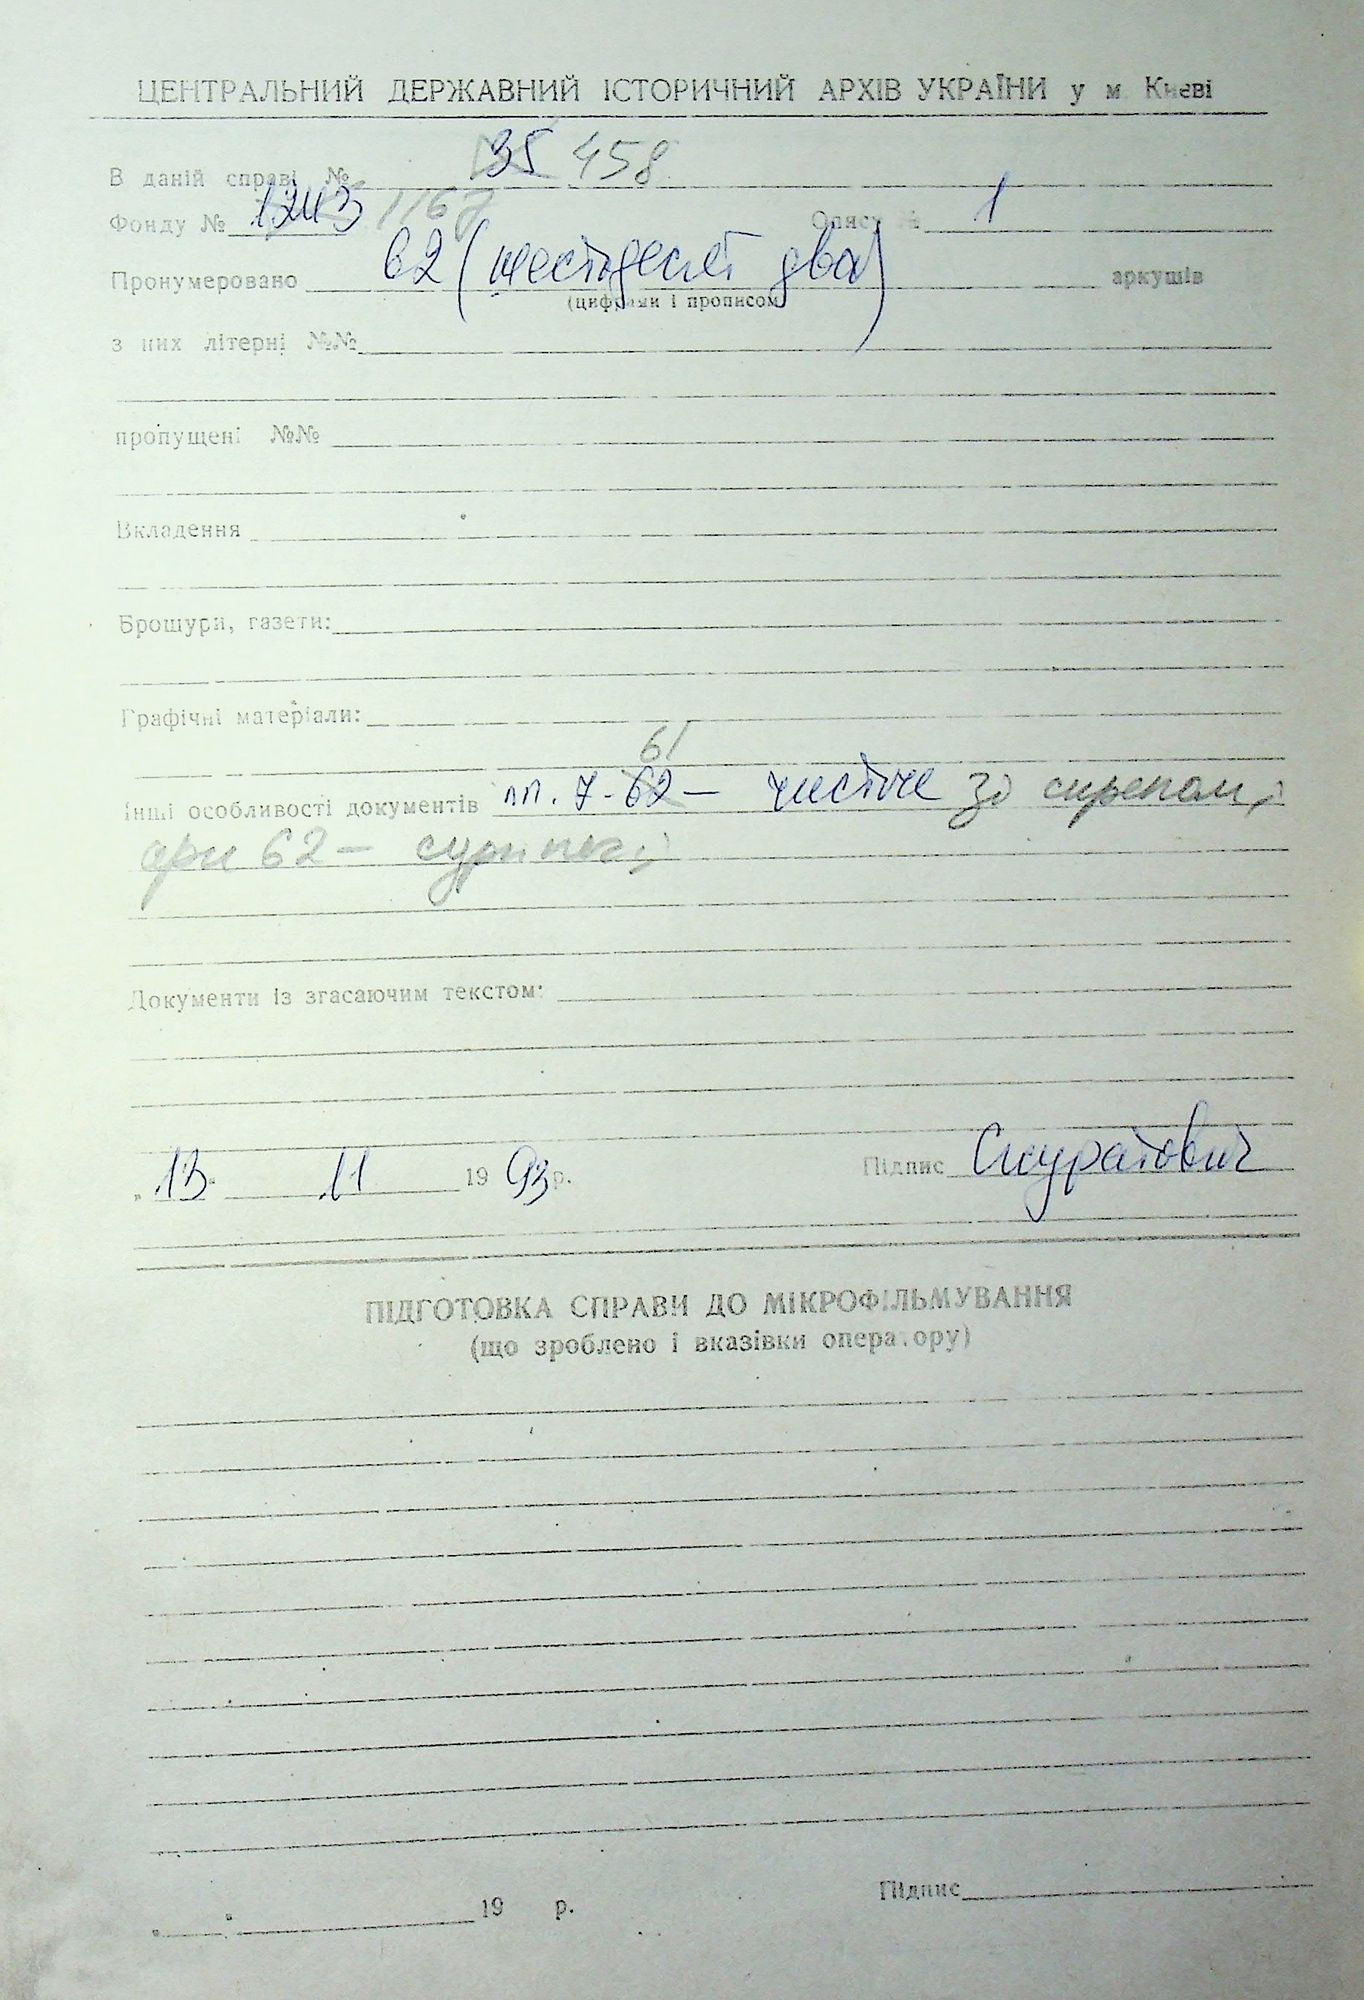 ЦЕНТРАЛЬНИЙ ДЕРЖАВНИЙ ІСТОРИЧНИЙ АРХІВ УКРАЇНИ у м. Києві
В даній справі № 35 458
Фонду № 1243 1167 Опису № 1
Пронумеровано 62 (шістдесят два) аркушів
(цифрами і прописом)
з них літерні №№
пропущені №№
Вкладення
Брошури, газети:
Графічні матеріали:
61
Інші особливості документів 7-62 – чистіче зі скрепами,
арк 62 –
Документи із згасаючим текстом:
"13" 11 1993 р. Підпис Скуратович
ПІДГОТОВКА СПРАВИ ДО МІКРОФІЛЬМУВАННЯ
(що зроблено і вказівки оператору)
" " 19 р. Підпис